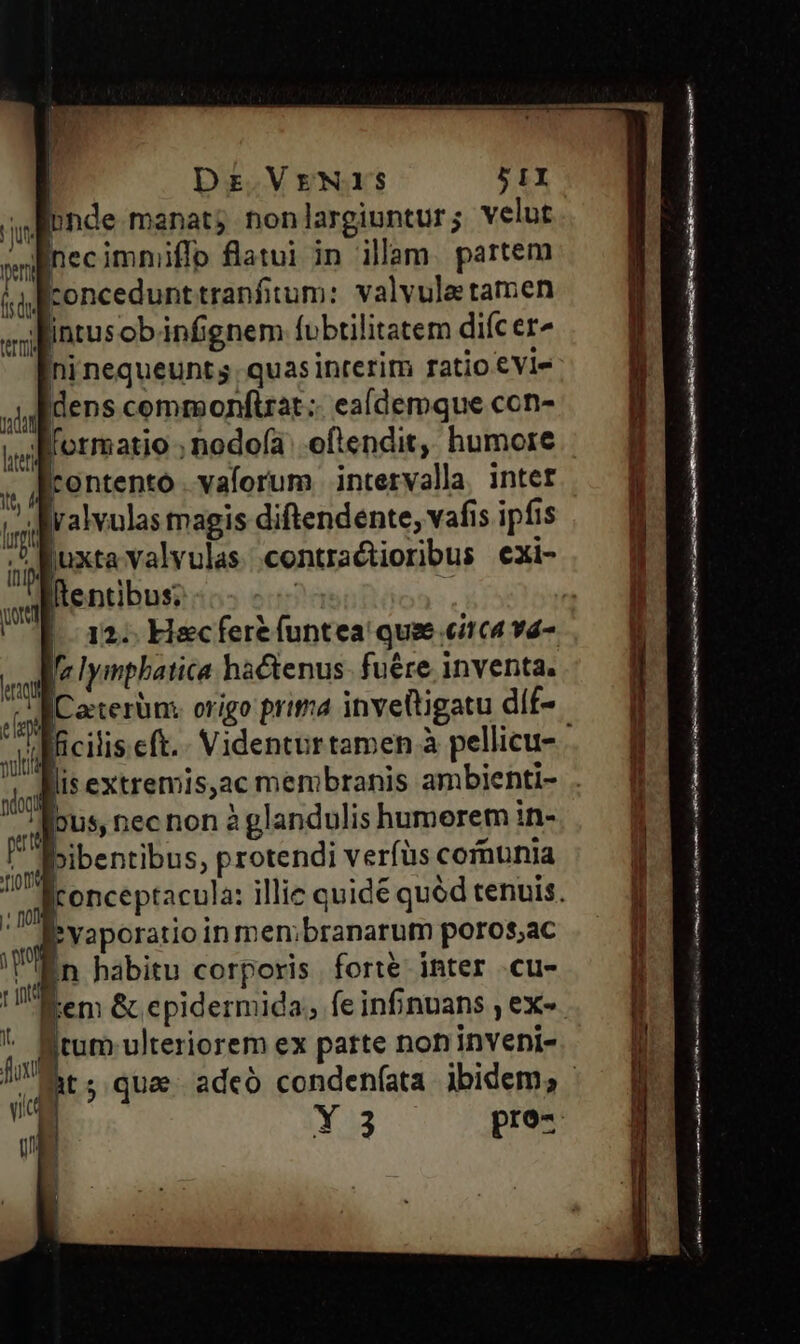 DE VENIS 511
unde manat; non largiuntur; velut
nec immiſſo flatui in illam partem
concedunt tranſitum: valvulæ tamen
intus ob inſignem ſubtilitatem diſcer-
ni nequeunt; quas interim ratio evi-
dens commonſtrat: eaſdemque con-
formatio nodoſa oſtendit, humore
contento vaſorum intervalla inter
valvulas magis diſtendente, vaſis ipſis
juxta valvulas contractioribus exi-
ſtentibus:
12. Hæc ferè ſunt ea quæ circa va-
ſa lymphatica hactenus fuêre inventa.
Cæterùm origo prima inveſtigatu dif-
ficilis eſt. Videntur tamen à pellicu-
lis extremis, ac membranis ambienti-
bus, nec non à glandulis humorem im-
bibentibus, protendi verſùs com̃unia
conceptacula: illic quidẽ quòd tenuis
evaporatio in membranarum poros, ac
in habitu corporis fortè inter cu-
tem & epidermida, ſe inſinuans, ex-
itum ulteriorem ex parte non inveni-
at; quæ adeò condenſata ibidem,
Y 3 pro-